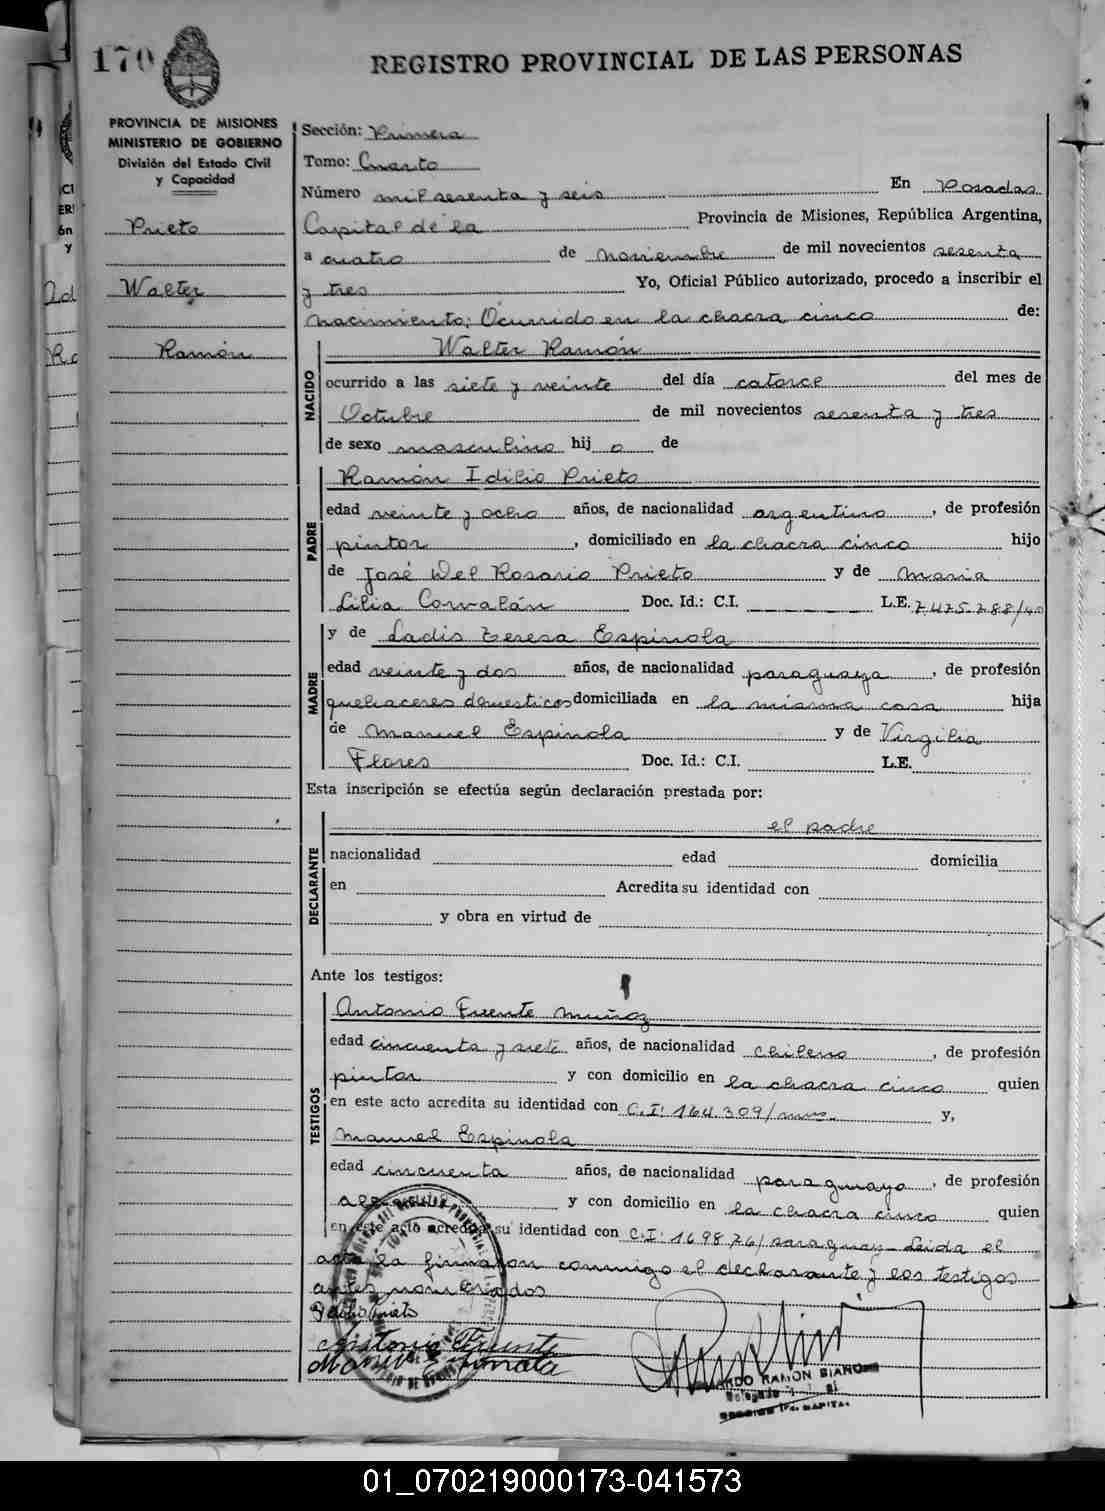 170
REGISTRO PROVINCIAL DE LAS PERSONAS
PROVINCIA DE MISIONES
MINISTERIO DE GOBIERNO
División del Estado Civil
y Capacidad
Prieto
Walter
Ramón
Sección: Primera
Tomo: Cuarto
Número mil sesenta y seis En Posadas
Capital de la Provincia de Misiones, República Argentina,
a cuatro de noviembre de mil novecientos sesenta
y tres Yo, Oficial Público autorizado, procedo a inscribir el
nacimiento; Ocurrido en la chacra cinco de:
NACIDO
Walter Ramón
ocurrido a las siete y veinte del día catorce del mes de
Octubre de mil novecientos sesenta y tres
de sexo masculino hij o de
PADRE
Ramón Idilio Prieto
edad veinte y ocho años, de nacionalidad argentino, de profesión
pintor, domiciliado en la chacra cinco hijo
de José Del Rosario Prieto y de Maria
Lilia Corvalán Doc. Id.: C.I. L.E. 7.475.788/40
MADRE
y de Ladis Teresa Espinola
edad veinte y dos años, de nacionalidad paraguaya, de profesión
quehaceres domesticos domiciliada en la misma casa hija
de Manuel Espinola y de Virgilia
Flores Doc. Id.: C.I. L.E.
Esta inscripción se efectúa según declaración prestada por:
DECLARANTE
el padre
nacionalidad edad domicilia
en Acredita su identidad con
y obra en virtud de
Ante los testigos:
TESTIGOS
Antonio Fuente Muñoz
edad cincuenta y siete años, de nacionalidad chileno, de profesión
pintor y con domicilio en la chacra cinco quien
en este acto acredita su identidad con C.I: 164.309/mnes. y,
Manuel Espinola
edad cincuenta años, de nacionalidad paraguayo, de profesión
y con domicilio en la chacra cinco quien
en este acto acredita su identidad con C.I: 169876/paraguay- Leida el
acta la firmaron conmigo el declarante y los testigos
antes nombrados
Antonio Fuente
RAMON BIANC
01_070219000173-041573